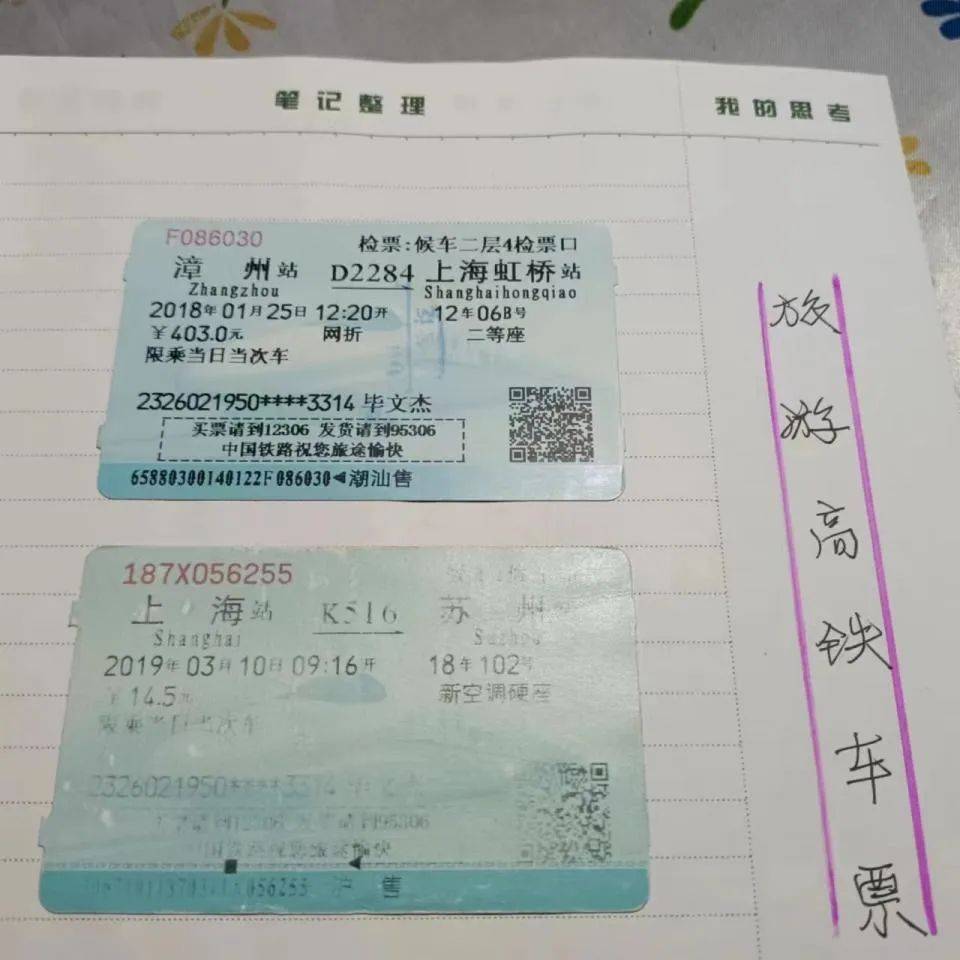 笔记整理
我的思考
F086030 检票:候车二层4检票口
漳 州站 D2284 上海虹桥站
Zhangzhou Shanghaihongqiao
2018年01月25日 12:20开 12车06B号
￥403.0元 网折 二等座
限乘当日当次车
2326021950****3314 毕文杰
买票请到12306 发货请到95306
中国铁路祝您旅途愉快
65880300140122F086030 潮汕售
187X056255
上 海站 K516 苏 州
Shanghai Suzhou
2019年03月10日 09:16开 18车102号
￥14.5元 新空调硬座
限乘当日当次车
2326021950****3314 毕文杰
请到12306 发货请到95306
中国铁路祝您旅途愉快
056255 沪 售
旅游高铁车票